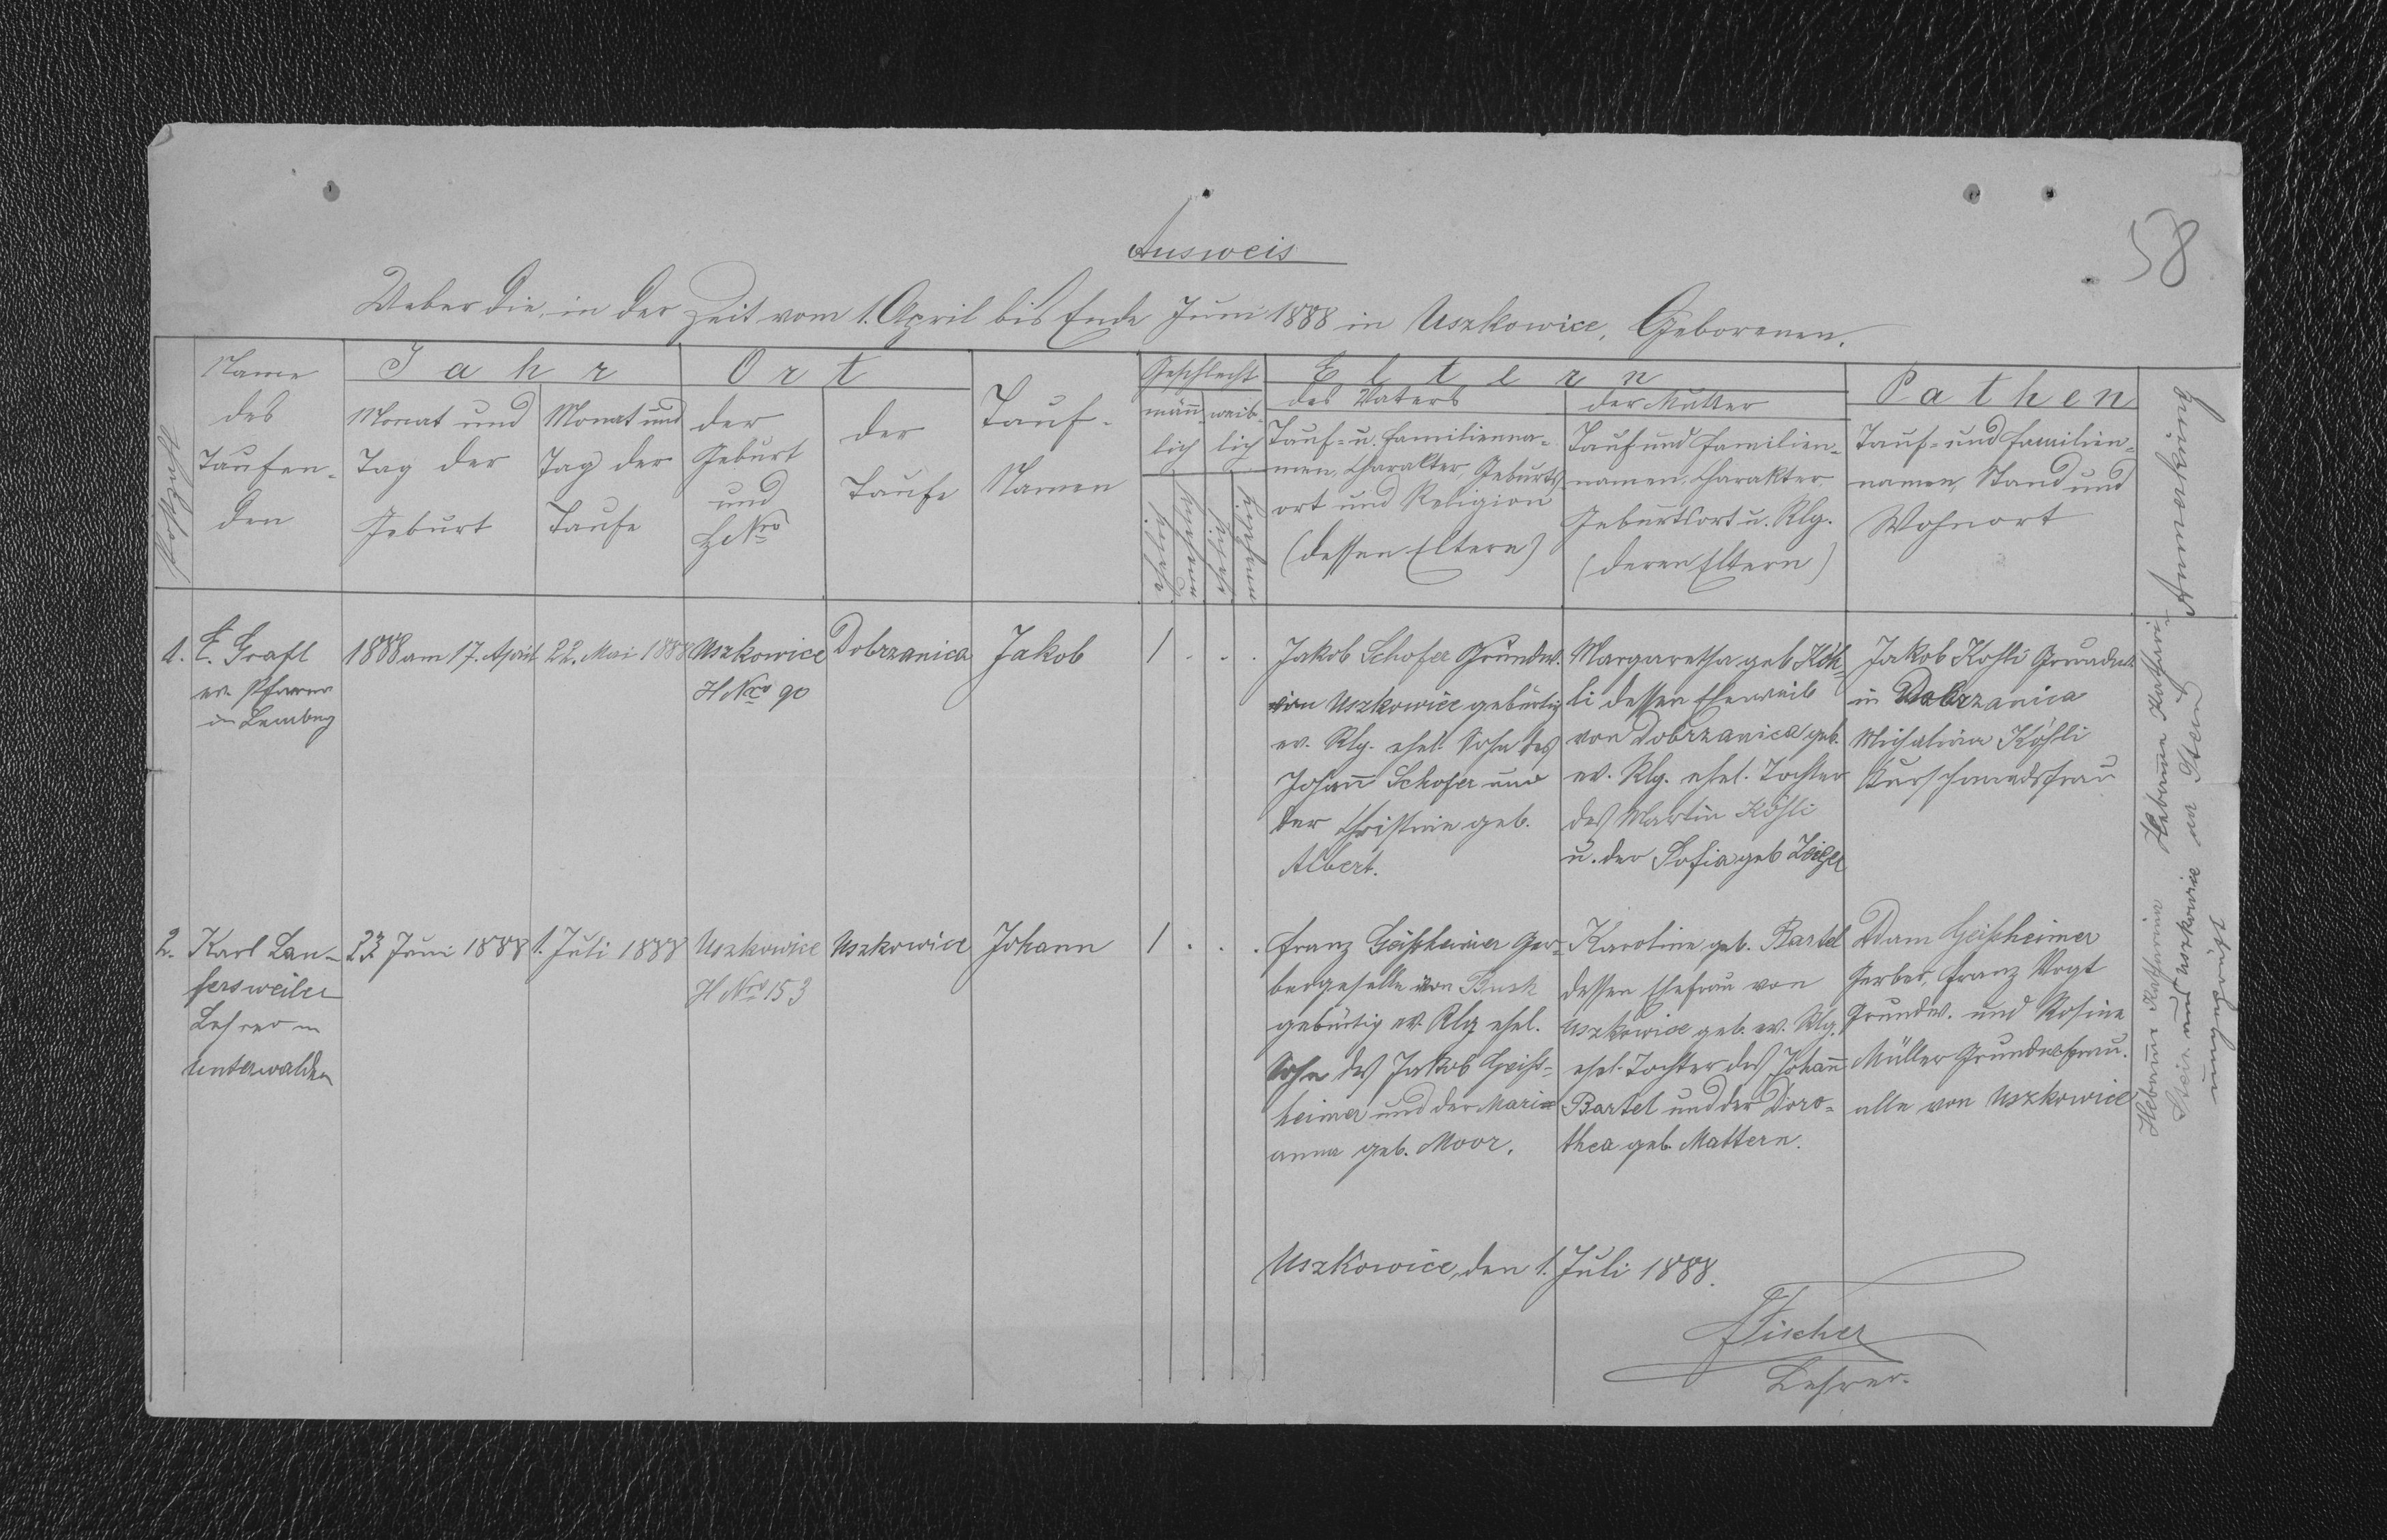 58
Ausweis
Ueber die in der Zeit vom 1. April bis Ende Juni 1888 in Uszkowice, Geborenen.
Name
des
Taufen-
den
Jahr
Monat und
Tag der
Geburt
Monat und
Tag der
Taufe
Ort
der
Geburt
und
HNro
der
Taufe
Tauf-
Namen
Geschlecht
männ-
lich
weib-
lich
Eltern
des Vaters
Tauf- u. Familienna-
men, Charakter, Geburts-
ort und Religion
(dessen Eltern)
der Mutter
Tauf und Familien-
namen, Charakter,
Geburtsort u. Rlg.
(deren Eltern)
Pathen
Tauf- und Familien-
namen, Stand und
Wohnort
Anmerkung
1.
E. Grafl
ev. Pfarrer
in Lemberg
1888 am 17. April
22. Mai 1888
Uszkowice
H Nro 90
Dobrzanica
Jakob
1 . . .
Jakob Schofer Grundw.
von Uszkowice gebürtig
ev. Rlg. ehel. Sohn des
Johann Schofer und
der Christine geb.
Albert.
Margaretha geb. Köh-
li dessen Eheweib
von Dobrzanica geb.
ev. Rlg. ehel. Tochter
des Martin Köhli
u. der Sofia geb.
Jakob Kohli Grundw.
in Dobrzanica
Köhli
2.
Karl Lan-
fersweiler
Lehrer in
Unterwalden
23. Juni 1888
1. Juli 1888
Uszkowice
H Nro 153
Uszkowice
Johann
1 . . .
Franz Geißheimer Ger-
bergeselle von Busk
gebürtig ev. Rlg. ehel.
Sohn des Jakob Geiß-
heimer und der Mari-
anna geb. Moor.
Karoline geb. Bartel
dessen Ehefrau von
Uszkowice geb. ev. Rlg.
ehel. Tochter des Johann
Bartel und der Doro-
thea geb. Mattern.
Adam Geißheimer
Gerber, Franz Vogt
Grundw. und Rosina
Müller Grundwsfrau.
alle von Uszkowice
Hebamme Kathari-
Hebamme Katharina
aus Uszkowice
ungeprüft
Uszkowice, den 1. Juli 1888.
Fischer
Lehrer.